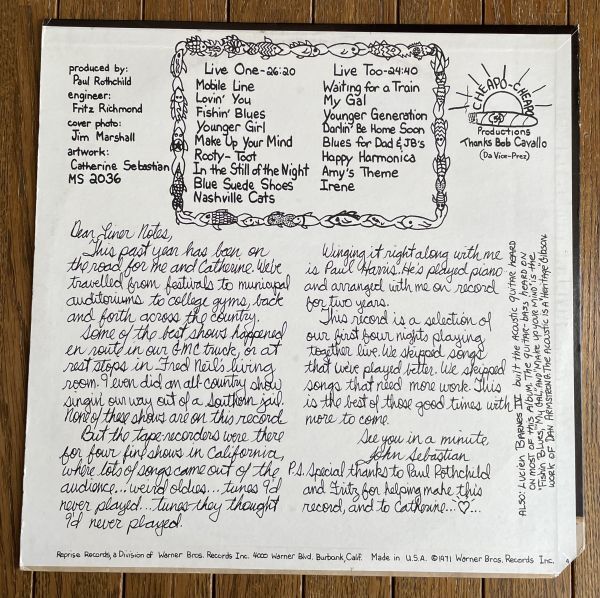 produced by:
Paul Rothchild
engineer:
Fritz Richmond
cover photo:
Jim Marshall
artwork:
Catherine Sebastian
MS 2036
Live One-26:20
Mobile Line
Lovin' You
Fishin' Blues
Younger Girl
Make Up Your Mind
Rooty-Toot
In the Still of the Night
Blue Suede Shoes
Nashville Cats
Live Too-24:40
Waiting for a Train
My Gal
Younger Generation
Darlin' Be Home Soon
Blues for Dad & JB's
Happy Harmonica
Amy's Theme
Irene
CHEAPO-CHEAPO
Productions
Thanks Bob Cavallo
(Da Vice-Prez)
Dear Liner Notes,
This past year has been on
the road for me and Catherine. We've
travelled from festivals to municipal
auditoriums to college gyms, back
and forth across the country.
Some of the best shows happened
en route in our GMC truck, or at
rest stops in Fred Neil's living
room. I even did an all-country show
singin' our way out of a Southern jail.
None of these shows are on this record
But the tape-recorders were there
for four fine shows in California,
where lots of songs came out of the
audience... weird oldies... tunes I'd
never played... tunes they thought
I'd never played.
Winging it right along with me
is Paul Harris. He's played piano
and arranged with me on record
for two years.
This record is a selection of
our first four nights playing
together live. We skipped songs
that we've played better. We skipped
songs that need more work. This
is the best of those good times with
more to come.
See you in a minute,
John Sebastian
P.S. Special thanks to Paul Rothchild
and Fritz for helping make this
record, and to Catherine...♡...
ALSO: LUCIEN BARNES IV built the acoustic guitar heard
on most of this album. The guitar-bass heard on
"Fishin' Blues, My Gal, and "Make Up Your Mind" is the
work of DAN ARMSTRONG. The acoustic is a Heritage Gibson.
Reprise Records, a Division of Warner Bros. Records Inc. 4000 Warner Blvd. Burbank, Calif. Made in U.S.A. ©1971 Warner Bros. Records Inc.